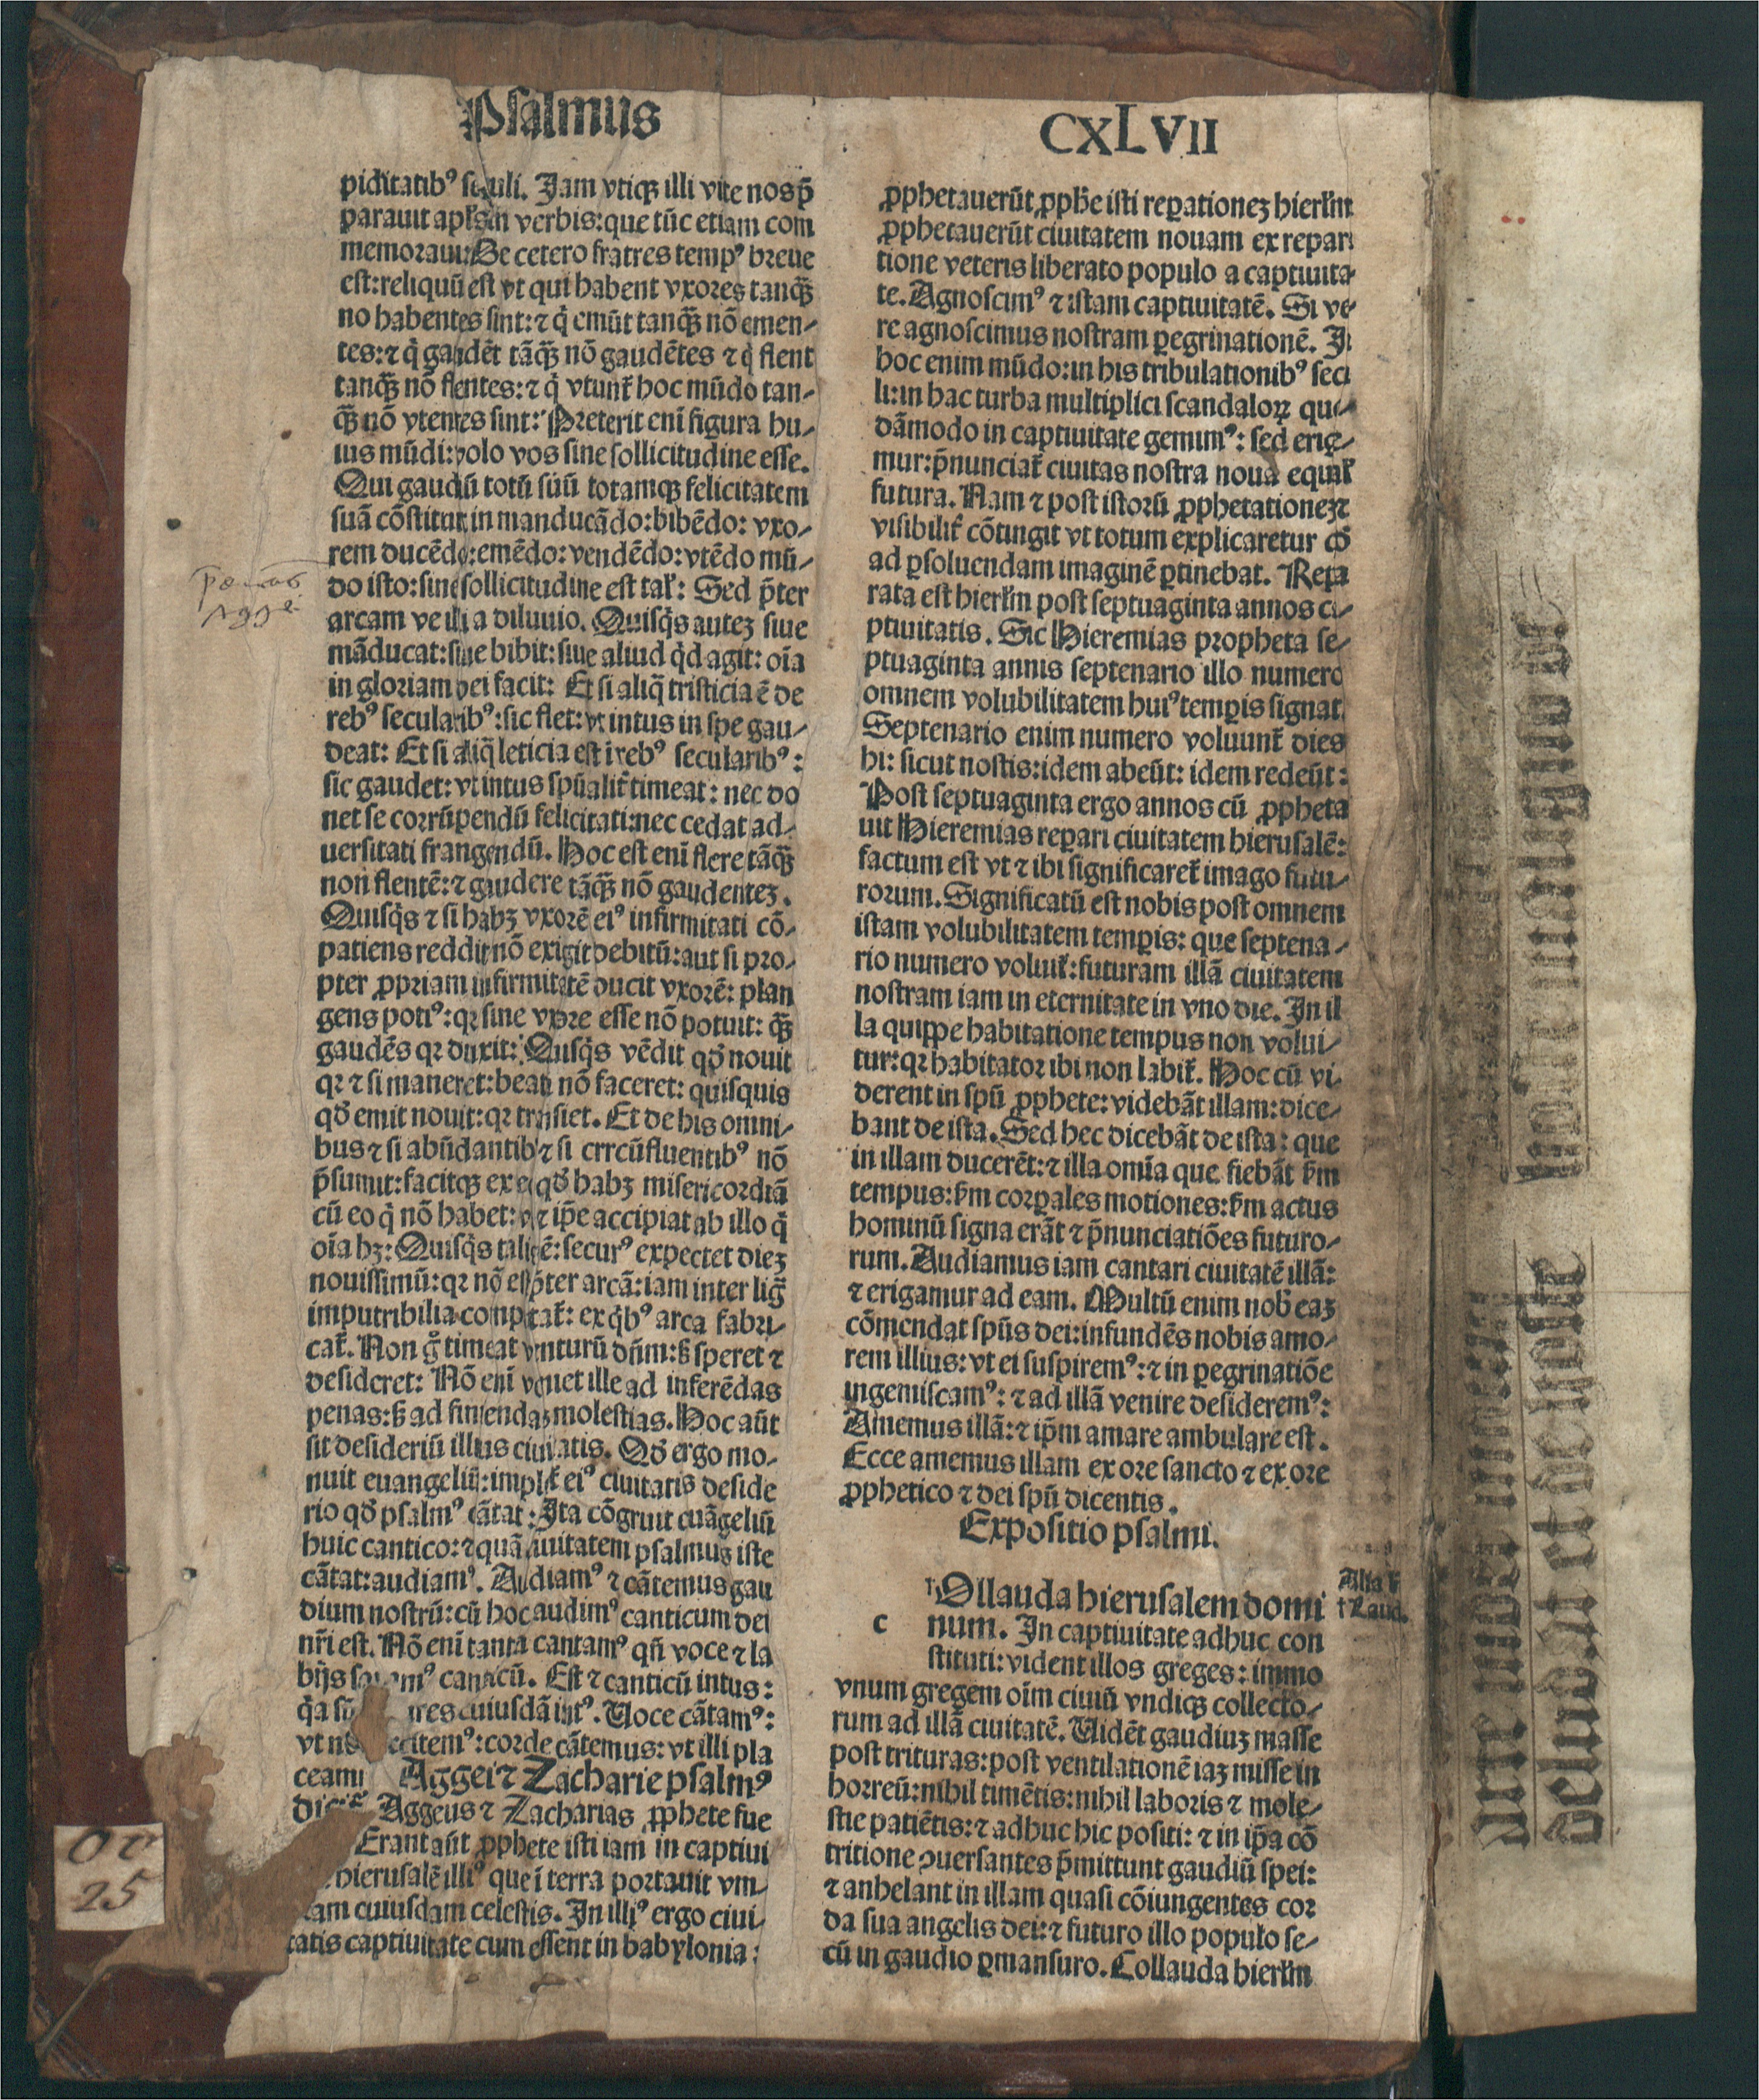 Psalmus
CXLVII
piditatibꝰ seculi. Jam vtiqꝫ illi vite nos p̄
parauit apl̓s in verbis: que tūc etiam com
memoraui: De cetero fratres tempꝰ breue
est: reliquū est vt qui habent vxores tanqꝫ̄
nō habentes sint: ⁊ q̇ emūt tanqꝫ̄ nō emen⸗
tes: ⁊ q̇ gaudēt tāqꝫ̄ nō gaudētes ⁊ q̇ flent
tanqꝫ̄ nō flentes: ⁊ q̇ vtunt̄ hoc mūdo tan⸗
qꝫ̄ nō vtentes sint: Preterit eni̅ figura hu⸗
ius mūdi: volo vos sine sollicitudine esse.
Qui gaudiū totū suū totamqꝫ felicitatem
suā cōstituit in manducādo: bibēdo: vxo⸗
rem ducēdo: emēdo: vendēdo: vtēdo mū⸗
do isto: sine sollicitudine est tal̓: Sed p̄ter
arcam ve illi a diluuio. Quisq̇s auteꝫ siue
māducat: siue bibit: siue aliud q̇d agit: oīa
in gloriam dei facit: Et si aliq̄ tristicia ē de
rebꝰ secularibꝰ: sic flet: vt intus in spe gau⸗
deat: Et si aliq̄ leticia est ī rebꝰ secularibꝰ:
sic gaudet: vt intus spūalit̄ timeat: nec do
net se corrūpendū felicitati: nec cedat ad⸗
uersitati frangendū. Hoc est eni̅ flere tāqꝫ̄
non flentē: ⁊ gaudere tāqꝫ̄ nō gaudenteꝫ.
Quisq̇s ⁊ si habꝫ vxorē eiꝰ infirmitati cō⸗
patiens reddit nō exigit debitū: aut si pro⸗
pter ꝓpriam infirmitatē ducit vxorē: plan
gens potiꝰ: qꝛ sine vxore esse nō potuit: qꝫ̄
gaudēs qꝛ duxit: Quisq̇s vēdit qđ nouit
qꝛ ⁊ si maneret: beatū nō faceret: quisquis
qđ emit nouit: qꝛ transiet. Et de his omni⸗
bus ⁊ si abūdantibꝰ ⁊ si crrcūfluentibꝰ nō
p̄sumit: facitqꝫ ex eo qđ habꝫ misericordiā
cū eo q̇ nō habet: vt ⁊ ip̄e accipiat ab illo q̇
oīa hꝫ: Quisq̇s talis ē: securꝰ expectet dieꝫ
nouissimū: qꝛ nō est p̄ter arcā: iam inter lig̅
imputribilia computat̄: ex q̇bꝰ arca fabri⸗
cat̄. Non g̊ timeat venturū dn̄m: sꝫ speret ⁊
desideret: Nō eni̅ veniet ille ad inferēdas
penas: sꝫ ad finiendas molestias. Hoc aūt
sit desideriū illius ciuitatis. Qđ ergo mo⸗
nuit euangeliū: implet̄ eiꝰ ciuitatis deside
rio qđ psalmꝰ cātat: Ita cōgruit euāgeliū
huic cantico: ⁊ quā ciuitatem psalmus iste
cātat: audiamꝰ. Audiamꝰ ⁊ cātemus gau
dium nostrū: cū hoc audimꝰ canticum dei
nr̄i est. Nō eni̅ tanta cantamꝰ qn̄ voce ⁊ la
bijs canticū. Est ⁊ canticū intus:
q̇a cuiusdā intꝰ. Uoce cātamꝰ:
vt citemꝰ: corde cātemus: vt illi pla
ceamꝰ Aggei ⁊ Zacharie psalmꝰ
dicit̄ Aggeus ⁊ Zacharias ꝓphete fue
Erant aūt ꝓphete isti iam in captiui
hierusalē illiꝰ que ī terra portauit vm⸗
cuiusdam celestis. In illiꝰ ergo ciui⸗
tatis captiuitate cum essent in babylonia:
ꝓphetauerūt ꝓph̄e isti reꝑationeꝫ hierl̓m
ꝓphetauerūt ciuitatem nouam ex repara
tione veteris liberato populo a captiuita⸗
te. Agnoscimꝰ ⁊ istam captiuitatē. Si ve⸗
re agnoscimus nostram ꝑegrinationē. In
hoc enim mūdo: in his tribulationibꝰ secu
li: in hac turba multiplici scandaloꝝ que⸗
dāmodo in captiuitate gemimꝰ: sed erige⸗
mur: p̄nunciat̄ ciuitas nostra noua
futura. Nam ⁊ post istorū ꝓphetationeꝫ ⁊
visibilit̄ cōtingit vt totum explicaretur qđ
ad ꝑsoluendam imaginē ꝑtinebat. Repa
rata est hierl̓m post septuaginta annos ca⸗
ptiuitatis. Sic Hieremias propheta se⸗
ptuaginta annis septenario illo numero
omnem volubilitatem huiꝰ temꝑis signat.
Septenario enim numero voluunt̄ dies
hi: sicut nostis: idem abeūt: idem redeūt:
Post septuaginta ergo annos cū ꝓpheta
uit Hieremias repari ciuitatem hierusalē:
factum est vt ⁊ ibi significaret̄ imago futu⸗
rorum. Significatū est nobis post omnem
istam volubilitatem temꝑis: que septena⸗
rio numero voluit̄: futuram illā ciuitatem
nostram iam in eternitate in vno die. In il
la quippe habitatione tempus non volui⸗
tur: qꝛ habitator ibi non labit̄. Hoc cū vi⸗
derent in spū ꝓphete: videbāt illam: dice⸗
bant de ista. Sed hec dicebāt de ista: que
in illam ducerēt: ⁊ illa omīa que fiebāt ẜm
tempus: ẜm corꝑales motiones: ẜm actus
hominū signa erāt ⁊ p̄nunciatiōes futuro⸗
rum. Audiamus iam cantari ciuitatē illā:
⁊ erigamur ad eam. Multū enim nob̄ eaꝫ
cōmendat spūs dei: infundēs nobis amo⸗
rem illius: vt ei suspiremꝰ: ⁊ in ꝑegrinatiōe
ingemiscamꝰ: ⁊ ad illā venire desideremꝰ:
Amemus illā: ⁊ ip̄m amare ambulare est.
Ecce amemus illam ex ore sancto ⁊ ex ore
ꝓphetico ⁊ dei spū dicentis.
Expositio psalmi.
Ollauda hierusalem domi
c num. In captiuitate adhuc con
stituti: vident illos greges: immo
vnum gregem oīm ciuiū vndiqꝫ collecto⸗
rum ad illā ciuitatē. Uidēt gaudiuꝫ masse
post trituras: post ventilationē iaꝫ misse in
horreū: nihil timētis: nihil laboris ⁊ mole⸗
stie patiētis: ⁊ adhuc hic positi: ⁊ in ip̄a cō
tritione ꝯuersantes p̄mittunt gaudiū spei:
⁊ anhelant in illam quasi cōiungentes cor
da sua angelis dei: ⁊ futuro illo populo se⸗
cū in gaudio ꝑmansuro. Collauda hierl̓m
†Laud.
OV
25